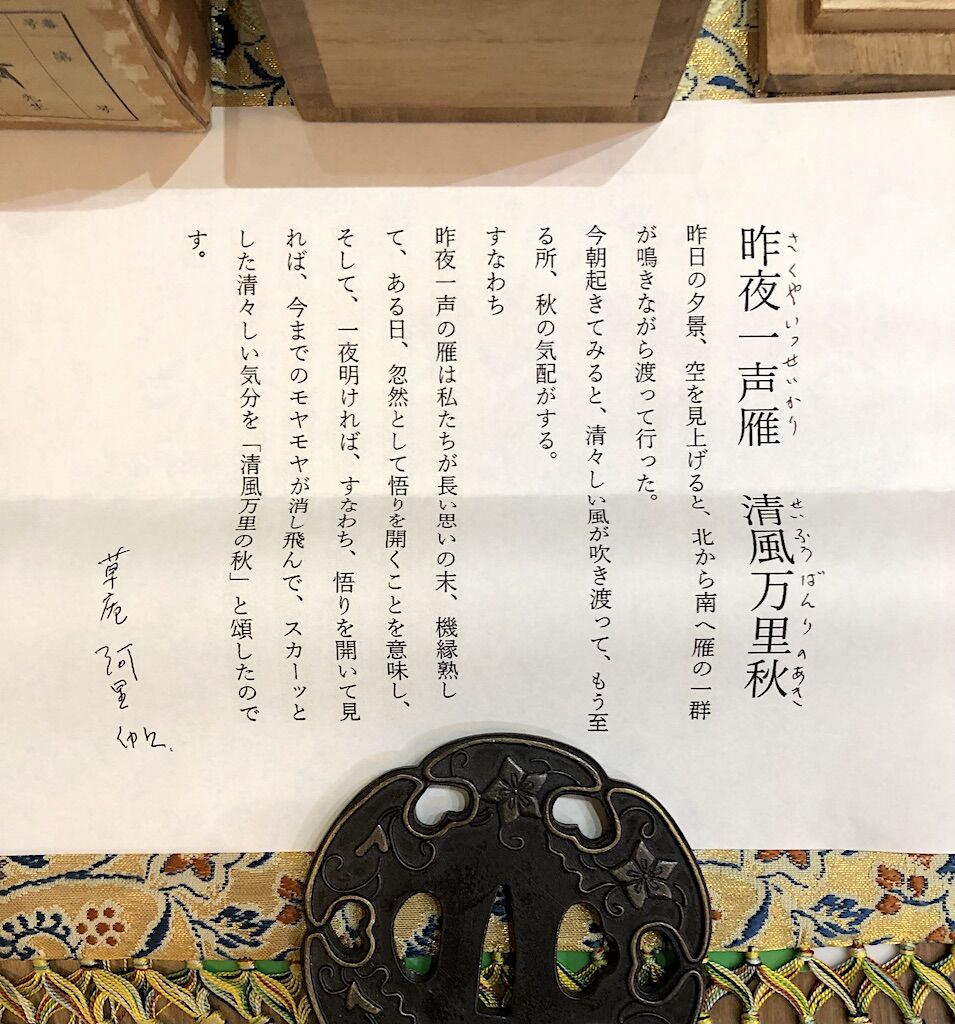 昨夜一声雁 清風万里秋
さくやいっせいかり せいふうばんりのあき
昨日の夕景、空を見上げると、北から南へ雁の一群
が鳴きながら渡って行った。
今朝起きてみると、清々しい風が吹き渡って、もう至
る所、秋の気配がする。
すなわち
昨夜一声の雁は私たちが長い思いの末、機縁熟し
て、ある日、忽然として悟りを開くことを意味し、
そして、一夜明ければ、すなわち、悟りを開いて見
れば、今までのモヤモヤが消し飛んで、スカーッと
した清々しい気分を「清風万里の秋」と頌したので
す。
草庵
番号
第
号